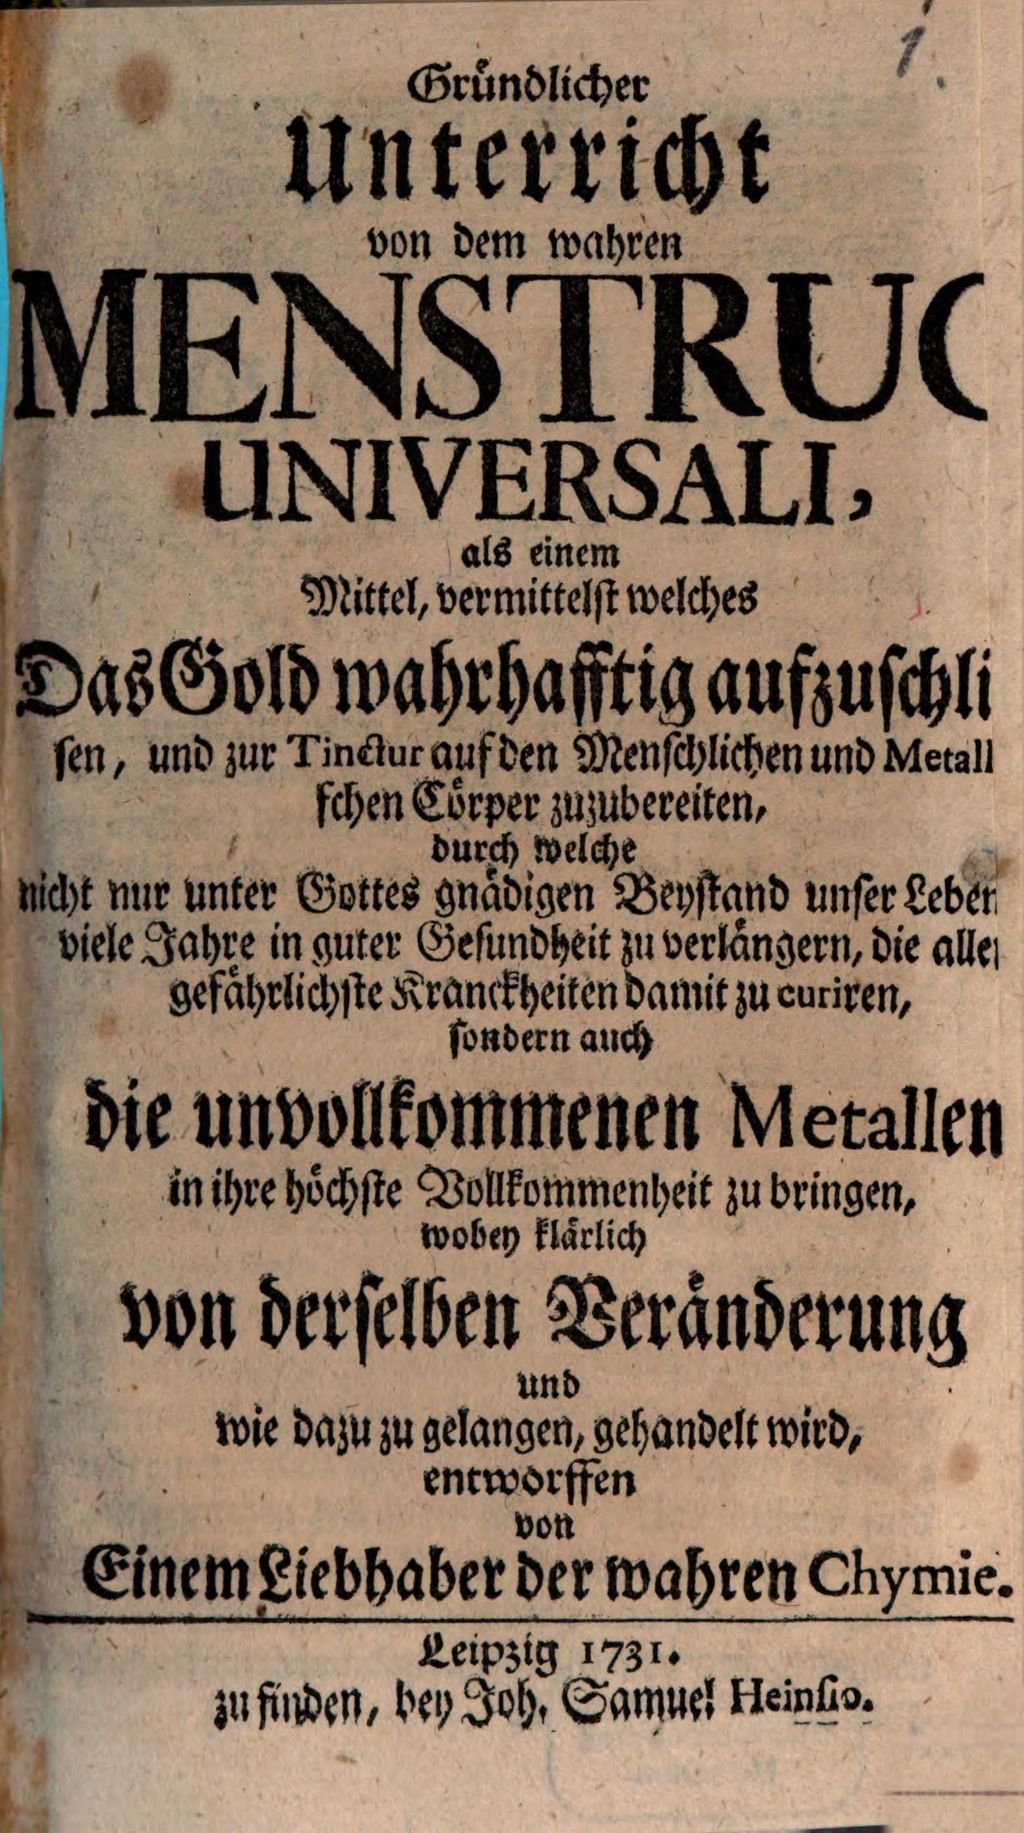 1.
Gründlicher
Unterricht
von dem wahren
MENSTRUO
UNIVERSALI,
als einem
Mittel, vermittelst welches
Das Gold wahrhafftig aufzuschli
sen, und zur Tinctur auf den Menschlichen und Metall
schen Cörper zuzubereiten,
durch welche
nicht nur unter Gottes gnädigen Beystand unser Leben
viele Jahre in guter Gesundheit zu verlängern, die aller
gefährlichste Kranckheiten damit zu curiren,
sondern auch
die unvollkommenen Metallen
in ihre höchste Vollkommenheit zu bringen,
wobey klärlich
von derselben Veränderung
und
wie dazu zu gelangen, gehandelt wird,
entworffen
von
Einem Liebhaber der wahren Chymie.
Leipzig 1731.
zu finden, bey Joh. Samuel Heinsio.